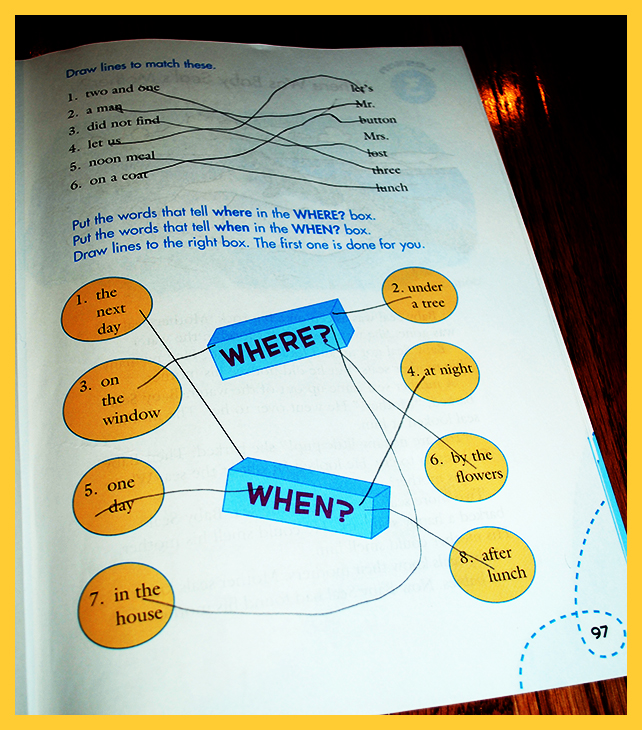 Draw lines to match these.
1. two and one
2. a man
3. did not find
4. let us
5. noon meal
6. on a coat
let's
Mr.
button
Mrs.
lost
three
lunch
Put the words that tell where in the WHERE? box.
Put the words that tell when in the WHEN? box.
Draw lines to the right box. The first one is done for you.
1. the
next
day
2. under
a tree
WHERE?
3. on
the
window
4. at night
5. one
day
6. by the
flowers
WHEN?
7. in the
house
8. after
lunch
97